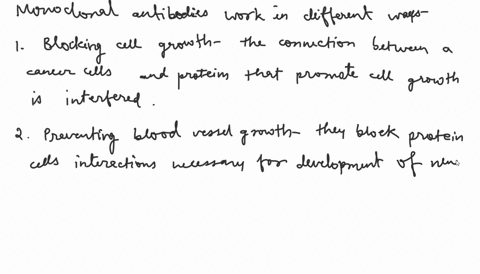 Monoclonal antibodies work in different ways-
1. Blocking cell growth- the connection between a
cancer cells and proteins that promote cell growth
is interfered.
2. Preventing blood vessel growth- they block protein
cells interactions necessary for development of new